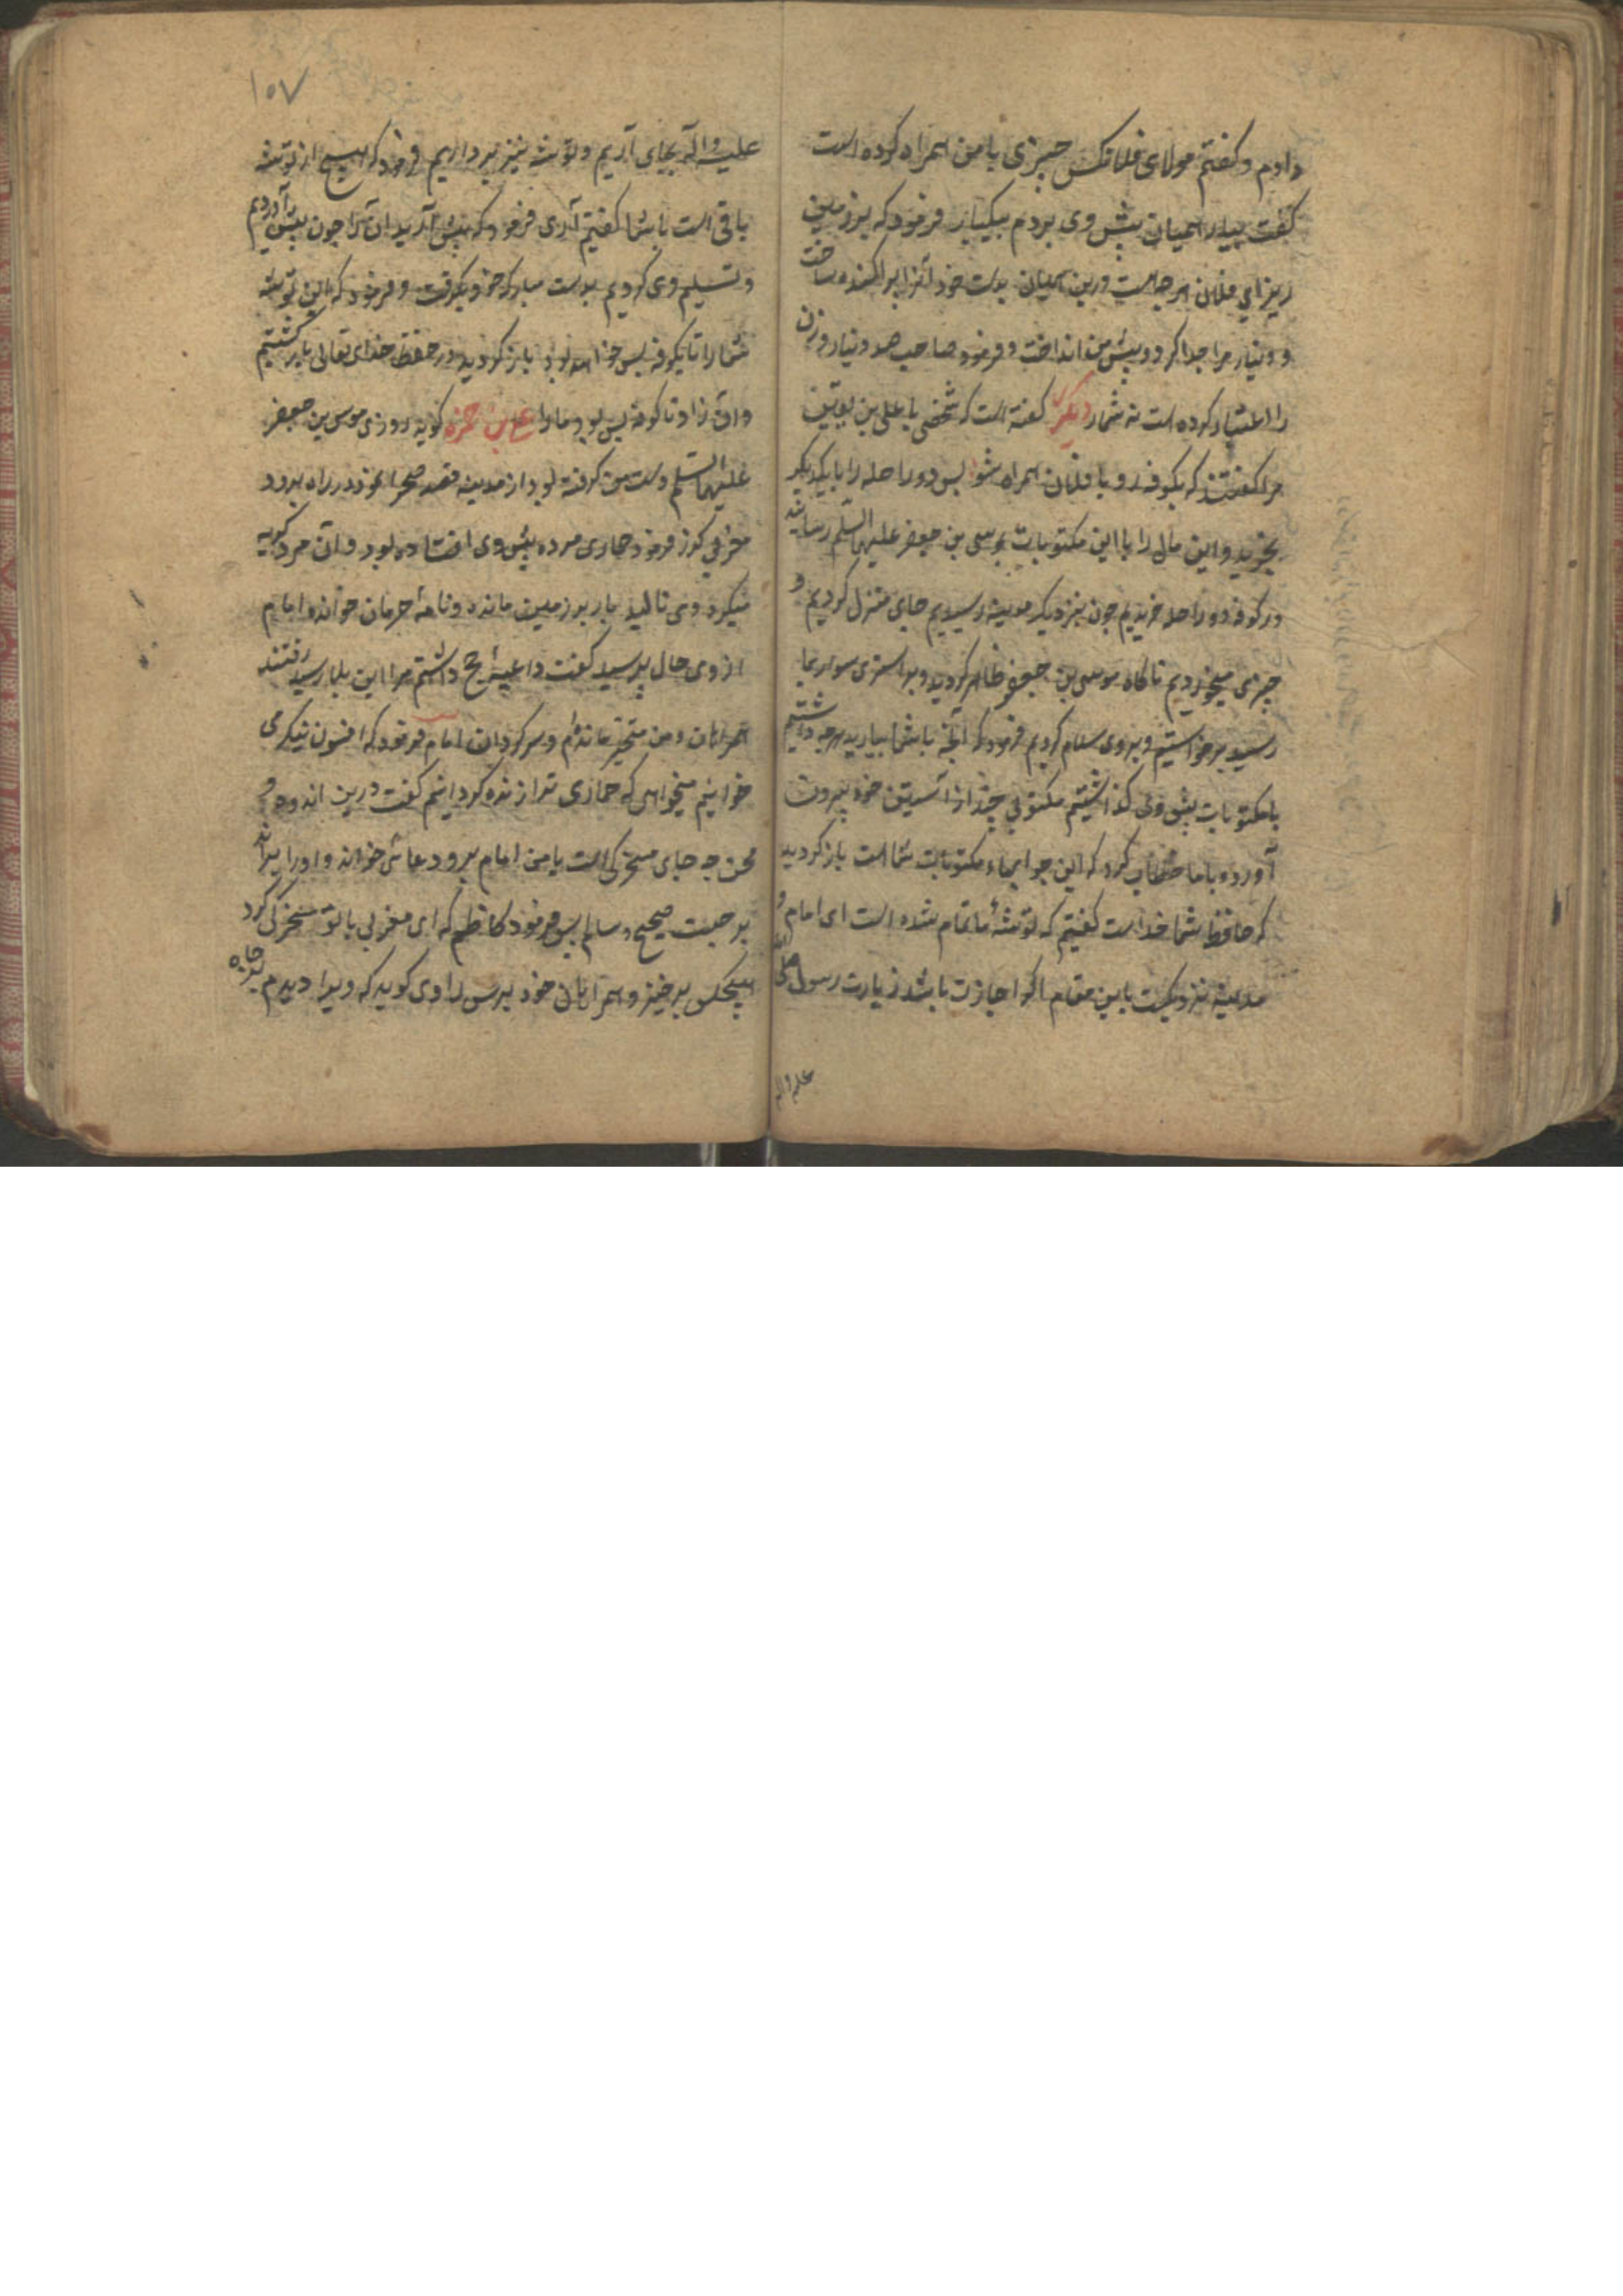 دادم و کفتم مولای فلانکس چیزی با من همراه کرده است
کفت بیار همیان پیش وی بردم بیکبار فرمود که بر زمین
ریز ای فلان هر چه هست درین همیان بدست خود آنرا پراکنده ساخت
و دینار مرا جدا کرد و پیش من انداخت و فرمود صاحب صد دینار وزن
را اعتبار کرده است نه شمار دیکر کفته است که شخصی با علی بن یقطین
مرا کفتند که بکوفه رو با فلان همراه شو پس دو راحله را با یکدیکر
بخرید و این مال را با این مکتوبات بموسی بن جعفر علیهما السلم رسانید
در کوفه دو راحله خریدیم چون بنزدیک مدینه رسیدیم جای منزل کردیم و
چیزی میخوردیم ناکاه موسی بن جعفر ظاهر کردید و بر استری سوار بما
رسید برخواستیم و بروی سلام کردیم فرمود که آنچه با شما بیارید هر چه داشتیم
با مکتوبات پیش وی کذاشتیم مکتوبی چند از آستین خود بیرون
آورد و با ما خطاب کرد که این جوابهاء مکتوبات شما است باز کردید
که حافظ شما خداست کفتیم که توشهٔ ما تمام شده است ای امام و
مدینه نزدیکست باین مقام اکر اجازت باشد زیارت رسول صلی الله
علیه واله
۱۰۷
علیه واله بجای آریم و توشه نیز برداریم فرمود که هیچ از توشه
باقی است با شما کفتیم آری فرمود که پیش آرید آنرا چون پیش آوردیم
و تسلیم وی کردیم بدست مبارک خود بکرفت و فرمود که این توشه
شما را تا بکوفه بس خواهد بود باز کردید در حفظ خدای تعالی باز کشتیم
و آن زاد تا کوفه بس بود ما را علی بن حمزه کوید روزی موسی بن جعفر
علیهما السلم دست من کرفته بود از مدینه قصد صحرا نمود در راه بر وو
مغربی کذر فرمود حماری مرده پیش وی افتاده بود و آن مرد کریه
میکرد و می نالید بار بر زمین مانده و نامهٔ حرمان خوانده امام
از وی حال پرسید کفت داعیهٔ حج داشتم مرا این بلا رسید رفتند
همراهان و من متحیر مانده‌ام و سرکردان امام فرمود که افسون نیکر می
خوانیم میخواهی که حماری ترا زنده کردانیم کفت درین اندوه و
محن چه جای مسخرکی است با من امام بر وی دعائی خواند و او را براند
برجست صحیح و سالم پس فرمود کاظم که ای مغربی با تو مسخرکی کرد
هیچکس برخیز و همراهان خود برس راوی کوید که ویرا دیدم بر چاه